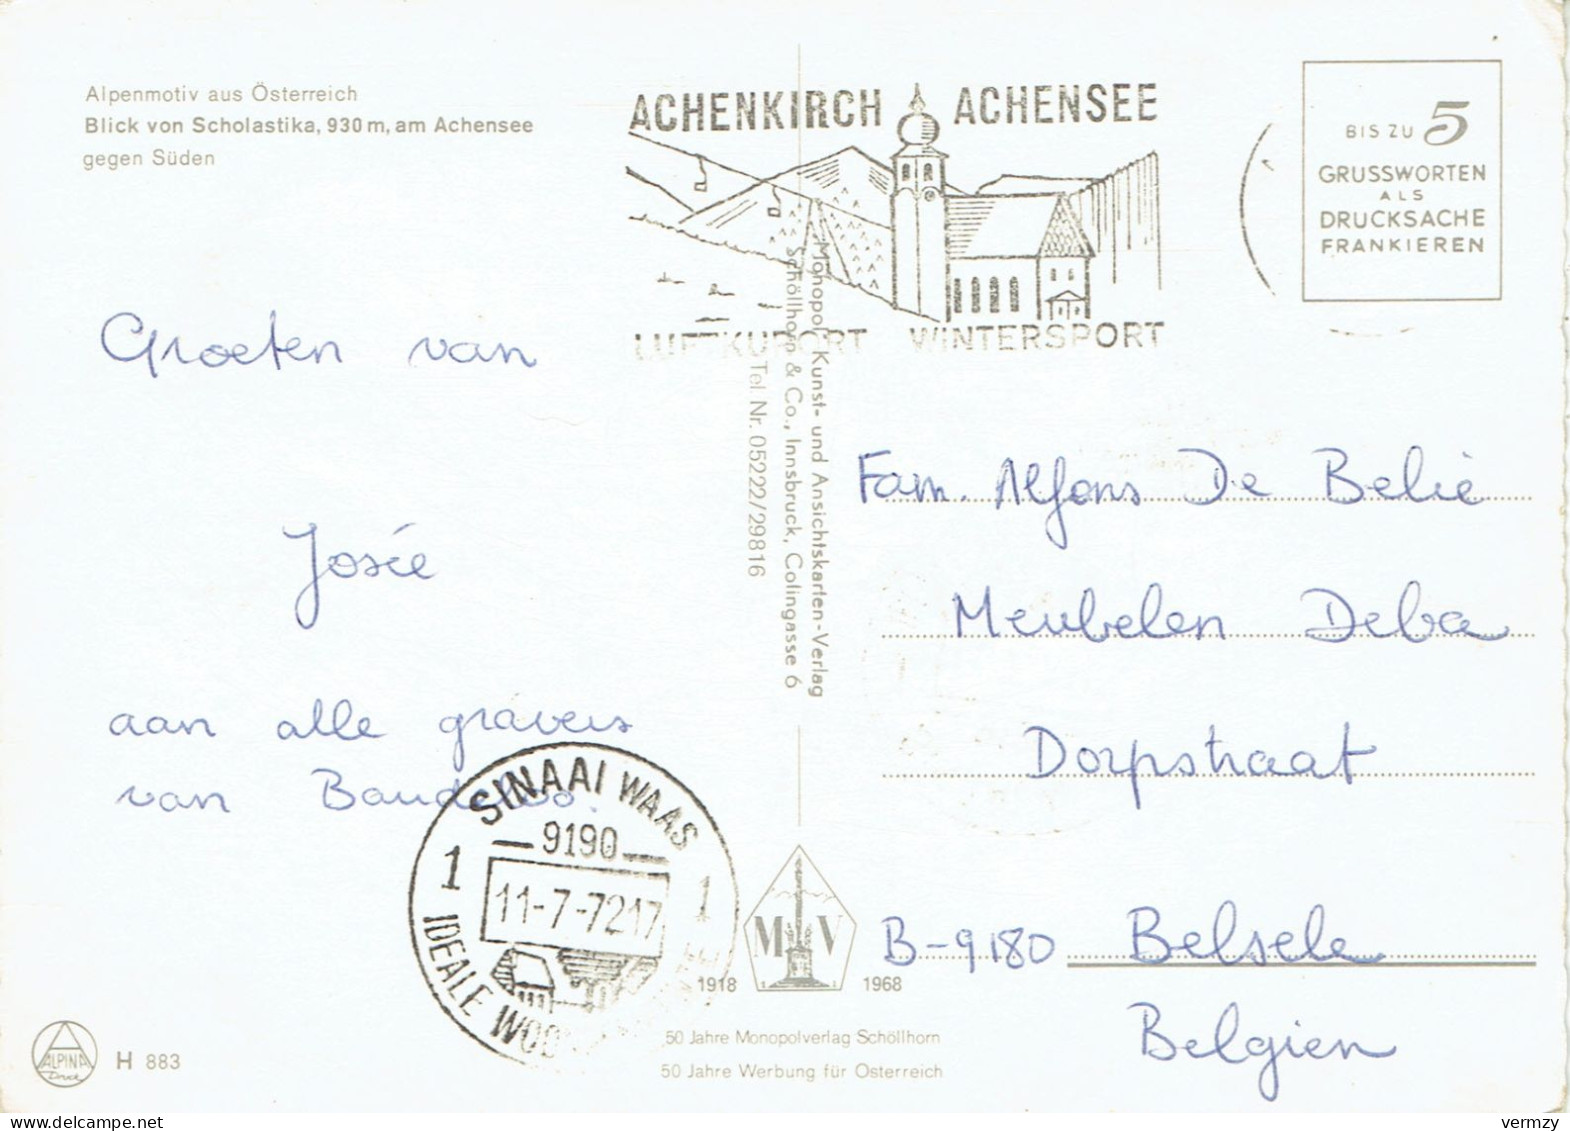 Alpenmotiv aus Österreich
Blick von Scholastika, 930 m, am Achensee
gegen Süden
ACHENKIRCH ACHENSEE
LUFTKURORT WINTERSPORT
BIS ZU 5
GRUSSWORTEN
ALS
DRUCKSACHE
FRANKIEREN
Groeten van
Josée
aan alle gravers
van Baudelo.
Monopol Kunst- und Ansichtskarten-Verlag
Schöllhorn & Co., Innsbruck, Colingasse 6
Tel Nr. 05222/29816
Fam. Alfons De Belie
Meubelen Deba
Dorpstraat
B-9180 Belsele
Belgien
SINAAI WAAS
9190
1 1
11-7-72 17
IDEALE
M V
1918 1968
50 Jahre Monopolverlag Schöllhorn
50 Jahre Werbung für Österreich
ALPINA
Druck
H 883
vermzy